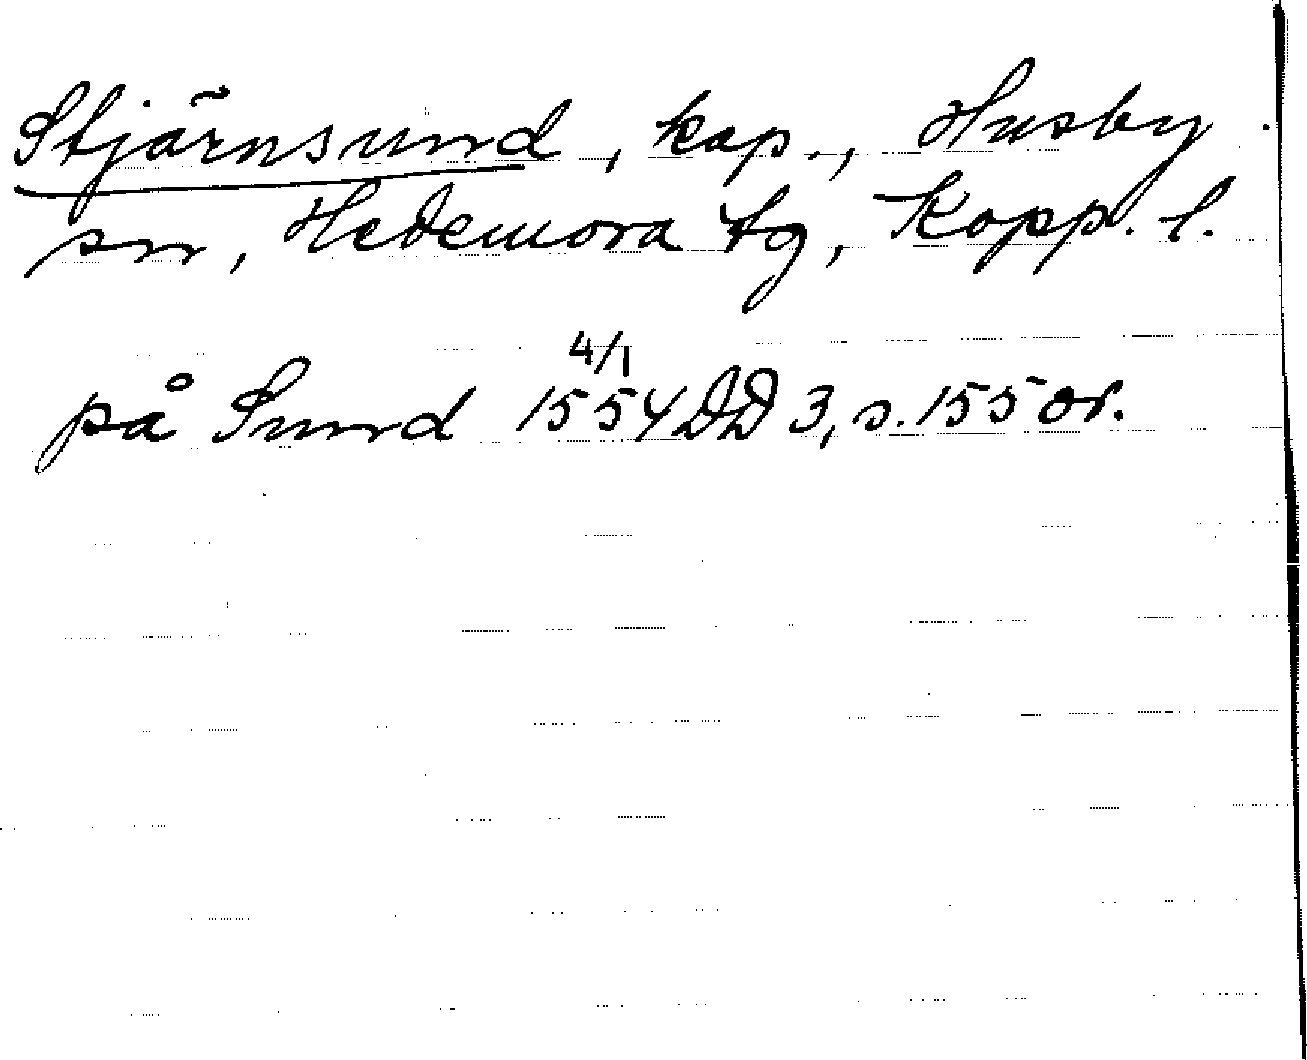 Stjärnsund, kap., Husby
sn, Hedemora tg, Kopp. l.
4/1
på Sund 1554 DD 3, s. 155 or.